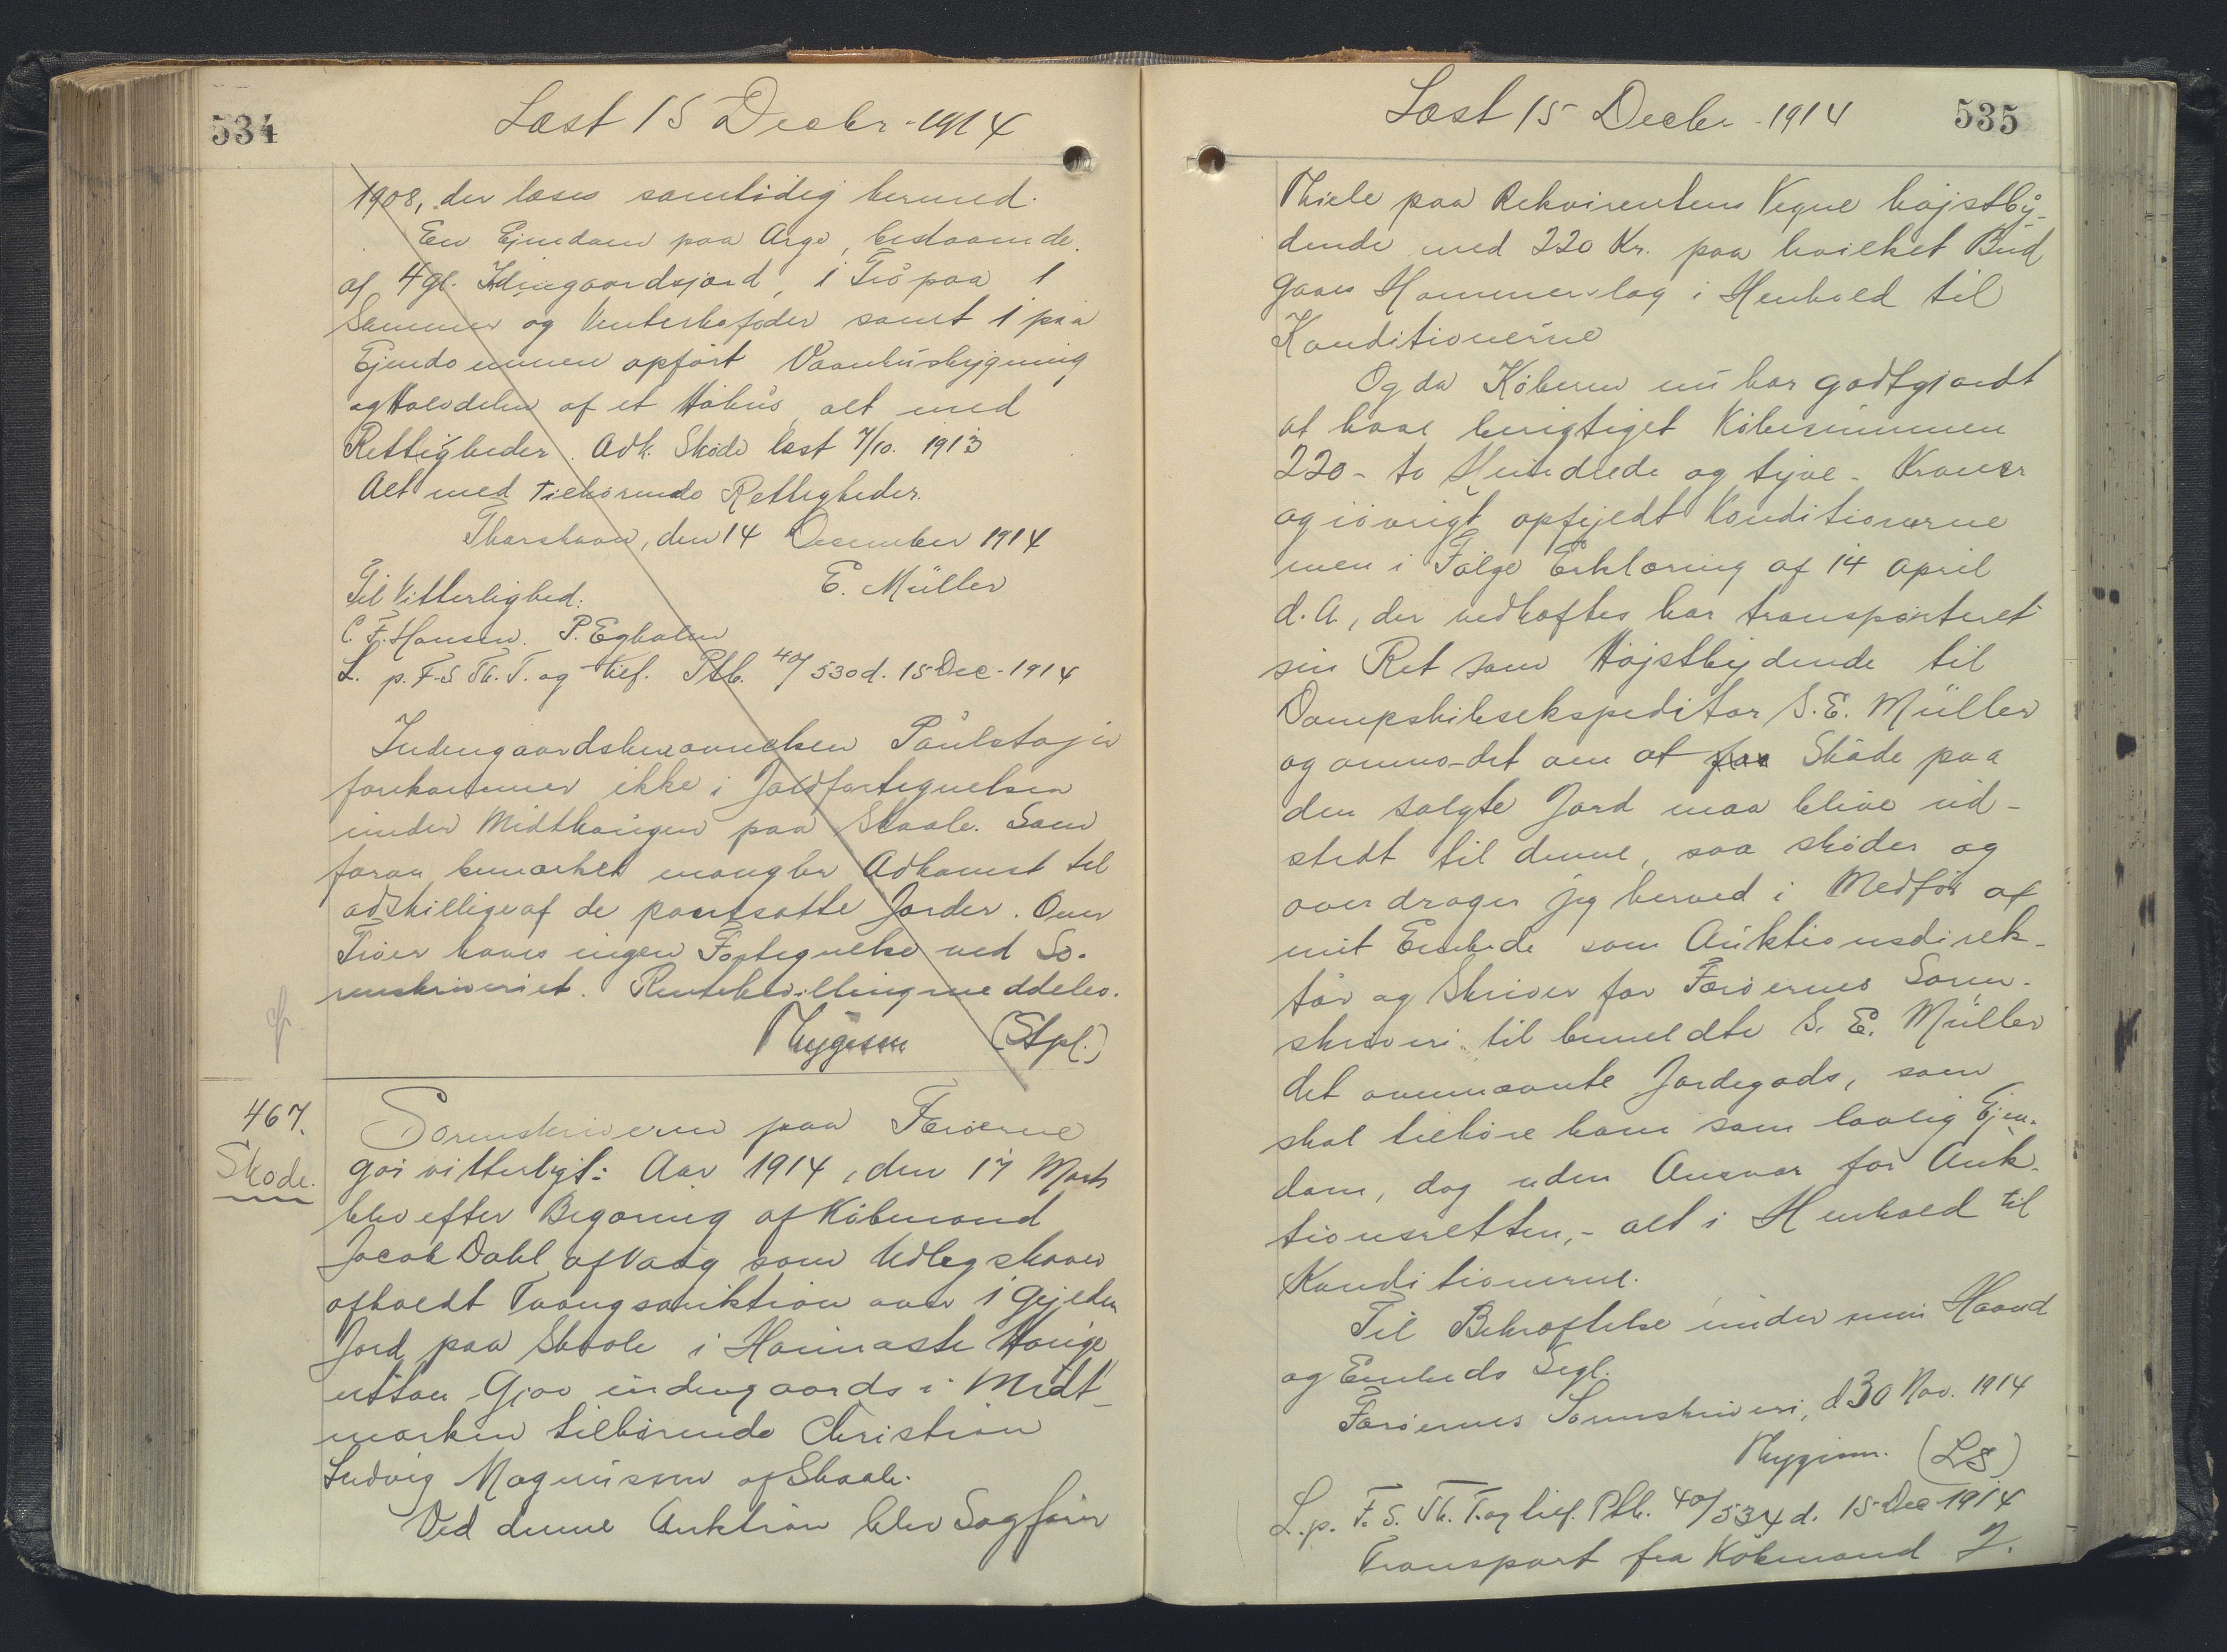 534
Læst 15 Decbr. 1914
1908, der læses samtidig hermed.
En Ejendom paa Argo, bestaaende
af 4 gl. Indengaardsjord, 1 Trö paa 1
Sommer og Vinterkofoder samt 1 paa
Ejendommen opført Vaanhusbygning
og Halvdelen af et Høhus, alt med
Rettigheder. Adk. Skøde læst 7/10. 1913
Alt med tilhørende Rettigheder.
Thorshavn, den 14 December 1914
E. Müller
Til Vitterlighed:
C. F. Hansen. P. Egholm
L. p. F.S. Th. T. og tilf. Ptb. 40/530 d. 15 Dec. 1914
Indengaardsbenævnelsen Paulstajir
forekommer ikke i Jordfortegnelsen
under Midthaugen paa Skaale. Som
foran bemærket mangler Adkomst til
adskillige af de pantsatte Jorder. Over
Tröer haves ingen Fortegnelse ved So-
renskriveriet. Rentebevilling meddeles.
Thygesen (Stpl.)
467.
Skøde.
Sorenskriveren paa Færøerne
gør vitterligt: Aar 1914, den 17 Marts
blev efter Begæring af Købmand
Jacob Dahl af Vaag som Udlægshaver
afholdt Tvangsauktion over 1 Gylden
Jord paa Skaale i Heimaste Hauge
uttan Gjov indengaards i Midt-
marken tilhørende Christian
Ludvig Magnussen af Skaale.
Ved denne Auktion blev Sagfører
535
Læst 15 Decbr. 1914
Thiele paa Rekvirentens Vegne højstby-
dende med 220 Kr. paa hvilket Bud
gaves Hammerslag i Henhold til
Konditionerne
Og da Køberen nu har godtgjordt
at have berigtiget Købesummen
220 - to Hundrede og tyve - Kroner
og iøvrigt opfyldt Konditionerne
men i Følge Erklæring af 14 April
d. A., der vedhæftes har transporteret
sin Ret som Højstbydende til
Dampskibsekspeditør S. E. Müller
og anmodet om at faa Skøde paa
den solgte Jord maa blive ud-
stedt til denne, saa skøder og
overdrager jeg herved i Medfør af
mit Embede som Auktionsdirek-
tør og Skriver for Færøernes Soren-
skriveri til bemeldte S. E. Müller
det ovennævnte Jordegods, som
skal tilhøre ham som lovlig Ejen-
dom, dog uden Ansvar for Auk-
tionsretten, - alt i Henhold til
Konditionerne.
Til Bekræftelse under min Haand
og Embeds Segl.
Færøernes Sorenskriveri, d 30 Nov. 1914
Thygesen. (LS)
L. p. F. S. Th. T. og tilf. Ptb. 40/534 d. 15 Dec 1914
Transport fra Købmand J.